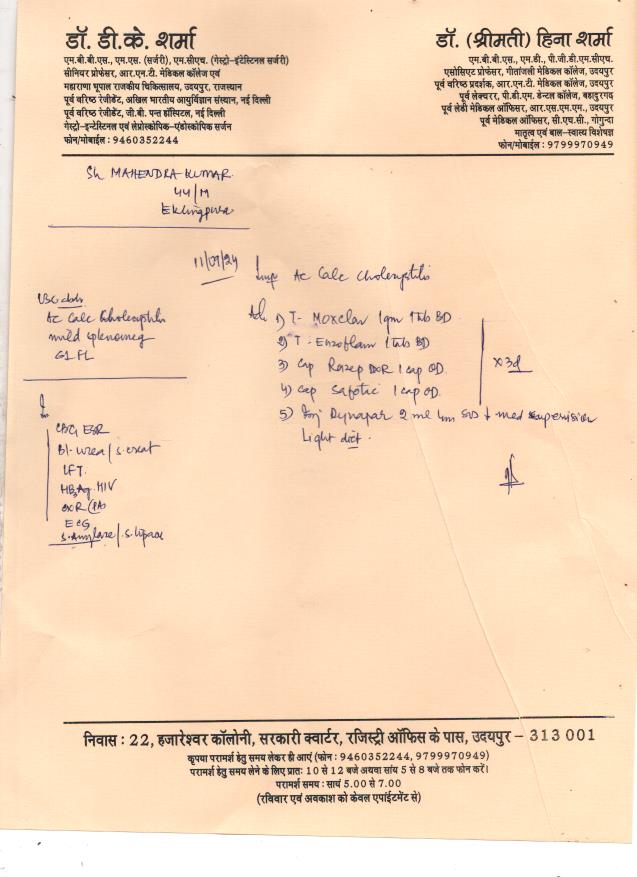 डॉ. डी.के. शर्मा
एम.बी.बी.एस., एम.एस. (सर्जरी), एम.सीएच. (गेस्ट्रो-इंटेस्टिनल सर्जरी)
सीनियर प्रोफेसर, आर.एन.टी. मेडिकल कॉलेज एवं
महाराणा भूपाल राजकीय चिकित्सालय, उदयपुर, राजस्थान
पूर्व वरिष्ठ रेजीडेंट, अखिल भारतीय आयुर्विज्ञान संस्थान, नई दिल्ली
पूर्व वरिष्ठ रेजीडेंट, जी.बी. पन्त हॉस्पिटल, नई दिल्ली
गेस्ट्रो-इन्टेस्टिनल एवं लेप्रोस्कोपिक-एंडोस्कोपिक सर्जन
फोन/मोबाईल : 9460352244
डॉ. (श्रीमती) हिना शर्मा
एम.बी.बी.एस., एम.डी., पी.जी.डी.एम.सीएच.
एसोसिएट प्रोफेसर, गीतांजली मेडिकल कॉलेज, उदयपुर
पूर्व वरिष्ठ प्रदर्शक, आर.एन.टी. मेडिकल कॉलेज, उदयपुर
पूर्व लेक्चरर, पी.डी.एम. डेन्टल कॉलेज, बहादुरगढ़
पूर्व लेडी मेडिकल ऑफिसर, आर.एस.एम.एम., उदयपुर
पूर्व मेडिकल ऑफिसर, सी.एच.सी., गोगुन्दा
मातृत्व एवं बाल-स्वास्थ्य विशेषज्ञ
फोन/मोबाईल : 9799970949
Sh MAHENDRA KUMAR
44/M
Eklingpura
11/09/24
Imp Ac Calc Cholecystitis
USG abdo
Ac Calc Cholecystitis
mild splenomeg
G1 FL
Adv 1) T- MOXCLAV 1gm 1 tab BD
2) T- Enzoflam 1 tab BD
3) Cap Razep DSR 1 cap OD
4) Cap Safotic 1 cap OD
x 3d
5) Inj Dynapar 2 ml Im SOS ↓ med supervision
Light diet.
CBC, ESR
Bl. urea / s. creat
LFT
HBsAg. HIV
CXR (PA)
ECG
S. Amylase / S. lipase
निवास : 22, हजारेश्वर कॉलोनी, सरकारी क्वार्टर, रजिस्ट्री ऑफिस के पास, उदयपुर - 313 001
कृपया परामर्श हेतु समय लेकर ही आएं (फोन : 9460352244, 9799970949)
परामर्श हेतु समय लेने के लिए प्रातः 10 से 12 बजे अथवा सांय 5 से 8 बजे तक फोन करें।
परामर्श समय : सायं 5.00 से 7.00
(रविवार एवं अवकाश को केवल एपॉइंटमेंट से)